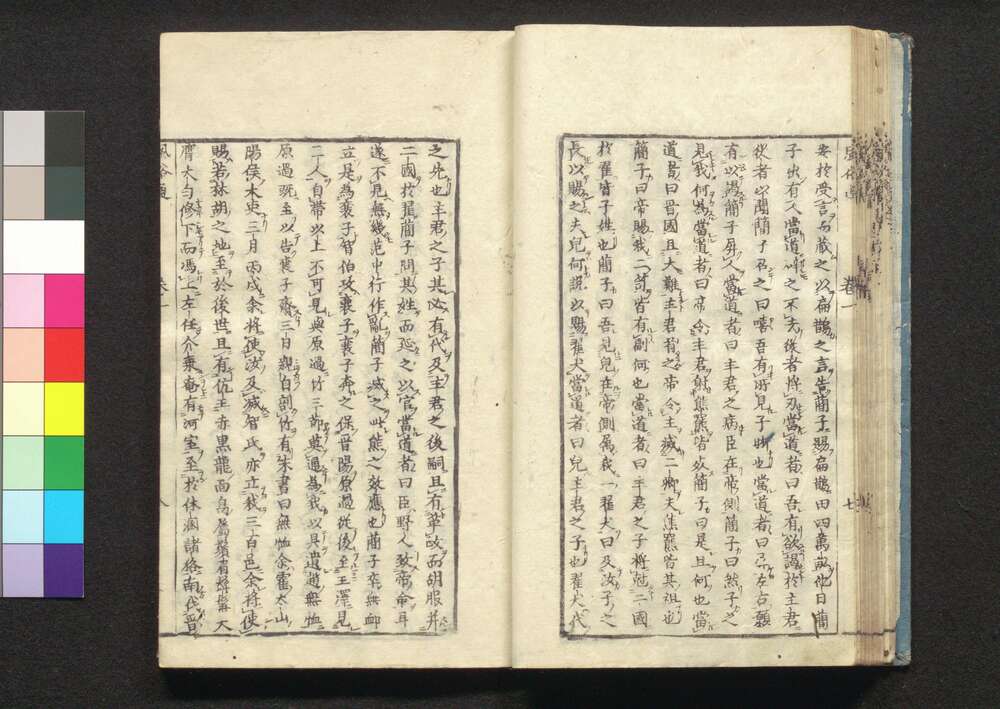 安於受言而藏之以扁鵲之言告簡子賜扁鵲田四萬畝他日簡
子出有人當道辟之不去從者將刃當道者曰吾有欲謁於主君
從者以聞簡子召之曰嘻吾有所見子晰也當道者曰屏左右願
有以謁簡子屏人當道者曰主君之病臣在帝側簡子曰然子之
見我何為當道者曰帝令主君射熊羆皆死簡子曰是且何也當
道者曰晉國且大難主君首之帝令主滅二卿夫熊羆皆其祖也
簡子曰帝賜我二笥皆有副何也當道者曰主君之子將尅二國
於翟皆子姓也簡子曰吾見兒在帝側屬我一翟犬曰及汝子之
長以賜之夫兒何說以賜翟犬當道者曰兒主君之子也翟犬代
之先也主君之子其必有代及主君之後嗣且有革政而胡服并
二國於翟簡子問其姓而延之以官當道者曰臣野人致帝命耳
遂不見無幾范中行作亂簡子滅之此熊之效應也簡子卒無卹
立是為襄子智伯攻襄子襄子奔之保晉陽原過從後至王澤見
二人自帶以上不可見與原過竹三節莫通為我以是遺趙無恤
原過既至以告襄子齋三日親自剖竹有朱書曰無恤余霍太山
陽侯木史三月丙戌余將使汝反滅智氏亦立我三百邑余將使
賜若林胡之地至於後世且有伉王赤黑龍面鳥噣鬢眉髭髯大
膺大匈修下而馮上左任介乗奄有河宗至於休溷諸貉南伐晉